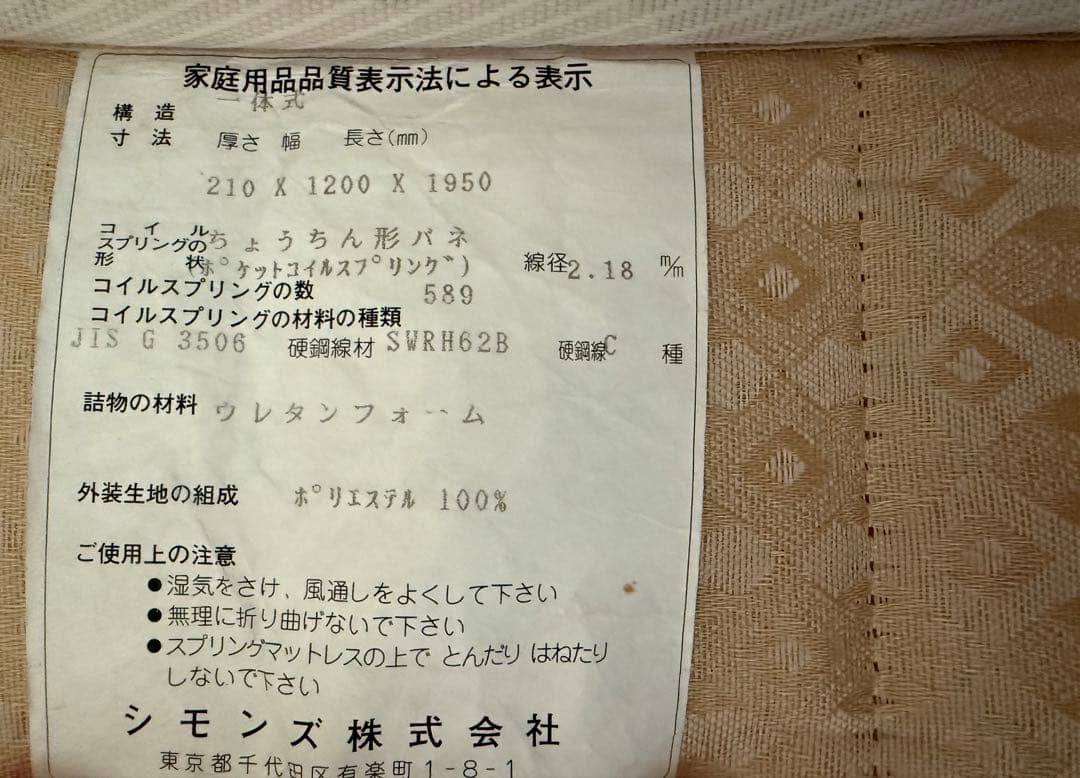 家庭用品品質表示法による表示
構造 一体式
寸法 厚さ 幅 長さ(mm)
210 X 1200 X 1950
コイルスプリングの形状 ちょうちん形バネ
(ポケットコイルスプリング) 線径 2.18 m/m
コイルスプリングの数 589
コイルスプリングの材料の種類
JIS G 3506 硬鋼線材 SWRH62B 硬鋼線C 種
詰物の材料 ウレタンフォーム
外装生地の組成 ポリエステル 100%
ご使用上の注意
●湿気をさけ、風通しをよくして下さい
●無理に折り曲げないで下さい
●スプリングマットレスの上で とんだり はねたり
しないで下さい
シモンズ株式会社
東京都千代田区有楽町1-8-1